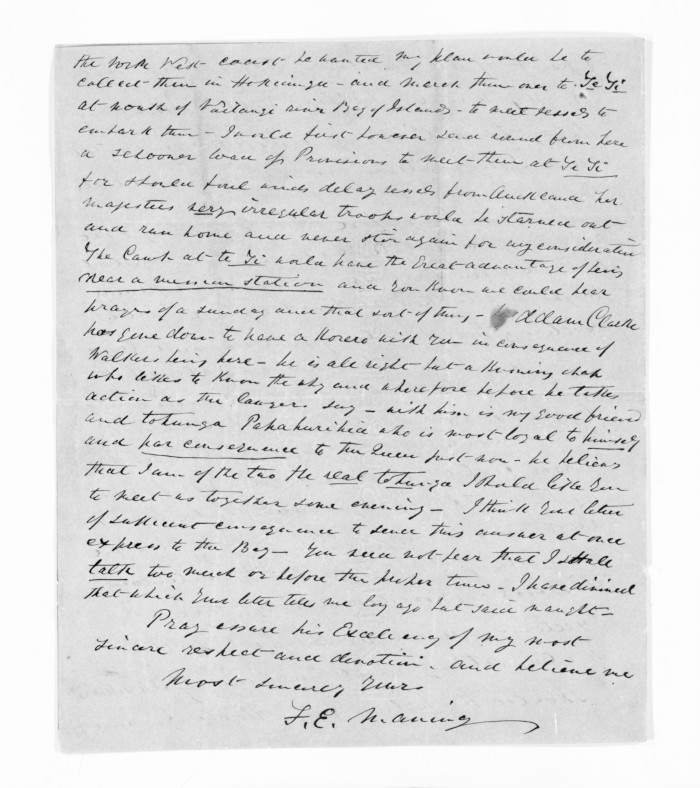 the North West coast be wanted my plan would be to
collect them in Hokianga - and march them over to Te Ti
at mouth of Waitangi river Bay of Islands - to meet vessels to
embark them - I would first however send round from here
a schooner load of Provisions to meet them at Te Ti
for should foul winds delay vessels from Auckland her
majesties very irregular troops would be starved out
and run home and never stir again for any consideration
The Camp at te Ti would have the great advantage of being
near a mission station and you know we could hear
prayers of a sunday and that sort of thing - Addam Clarke
has gone down to have a Korero with you in consequence of
Walkers being here - he is all right but a knowing chap
who likes to know the why and wherefore before he takes
action as the lawyers say - with him is my good friend
and tohunga Papahurihia who is most loyal to himself
and par consequence to the Queen just now - he believes
that I am of the two the real tohunga I should like you
to meet us together some evening - I think your letter
of sufficient consequence to send this answer at once
express to the Bay - You need not fear that I shall
talk too much or before the proper time - I have divined
that which your letter tells me long ago but said naught -
Pray assure his Excelency of my most
sincere respect and devotion - and believe me
Most sincerely yours
F. E. Maning